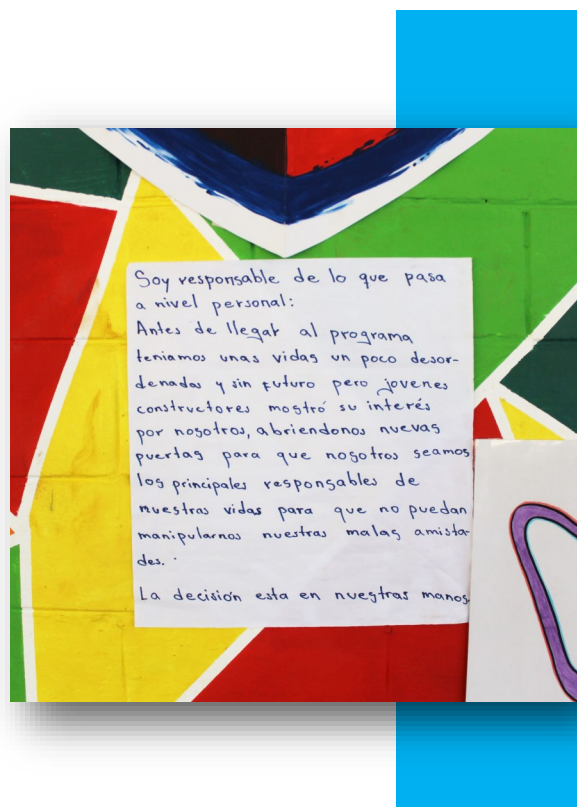 Soy responsable de lo que pasa
a nivel personal:
Antes de llegar al programa
teniamos unas vidas un poco desor-
denadas y sin futuro pero jovenes
constructores mostró su interés
por nosotros, abriendonos nuevas
puertas para que nosotros seamos
los principales responsables de
nuestras vidas para que no puedan
manipularnos nuestras malas amista-
des.
La decisión esta en nuestras manos.